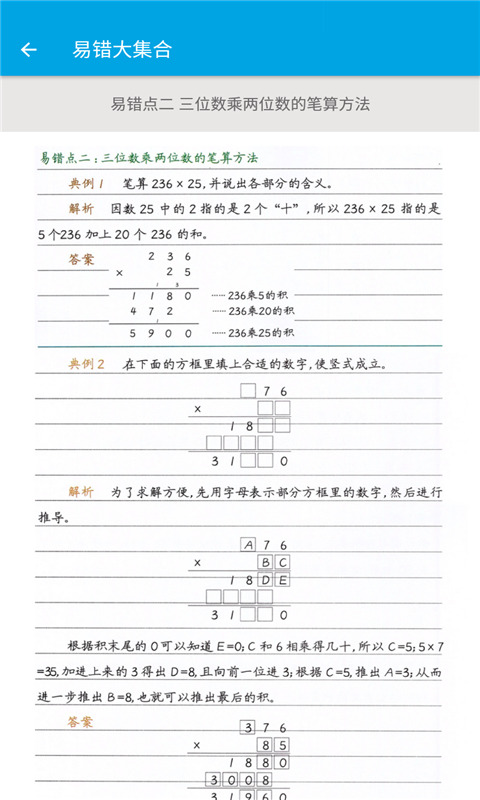 易错大集合
易错点二 三位数乘两位数的笔算方法
易错点二:三位数乘两位数的笔算方法
典例1 笔算236×25,并说出各部分的含义。
解析 因数25中的2指的是2个“十”,所以236×25指的是
5个236加上20个236的和。
答案
2 3 6
× 2 5
1 3
1 1 8 0 ……236乘5的积
4 7 2 ……236乘20的积
1
5 9 0 0 ……236乘25的积
典例2 在下面的方框里填上合适的数字,使竖式成立。
□ 7 6
× □ □
1 8 □ □
□ □ □ □
3 1 □ □ 0
解析 为了求解方便,先用字母表示部分方框里的数字,然后进行
推导。
A 7 6
× B C
1 8 D E
□ □ □ □
3 1 □ □ 0
根据积末尾的0可以知道E=0;C和6相乘得几十,所以C=5;5×7
=35,加进上来的3得出D=8,且向前一位进3;根据C=5,推出A=3;从而
进一步推出B=8,也就可以推出最后的积。
答案
3 7 6
× 8 5
1 8 8 0
3 0 0 8
3 1 9 6 0